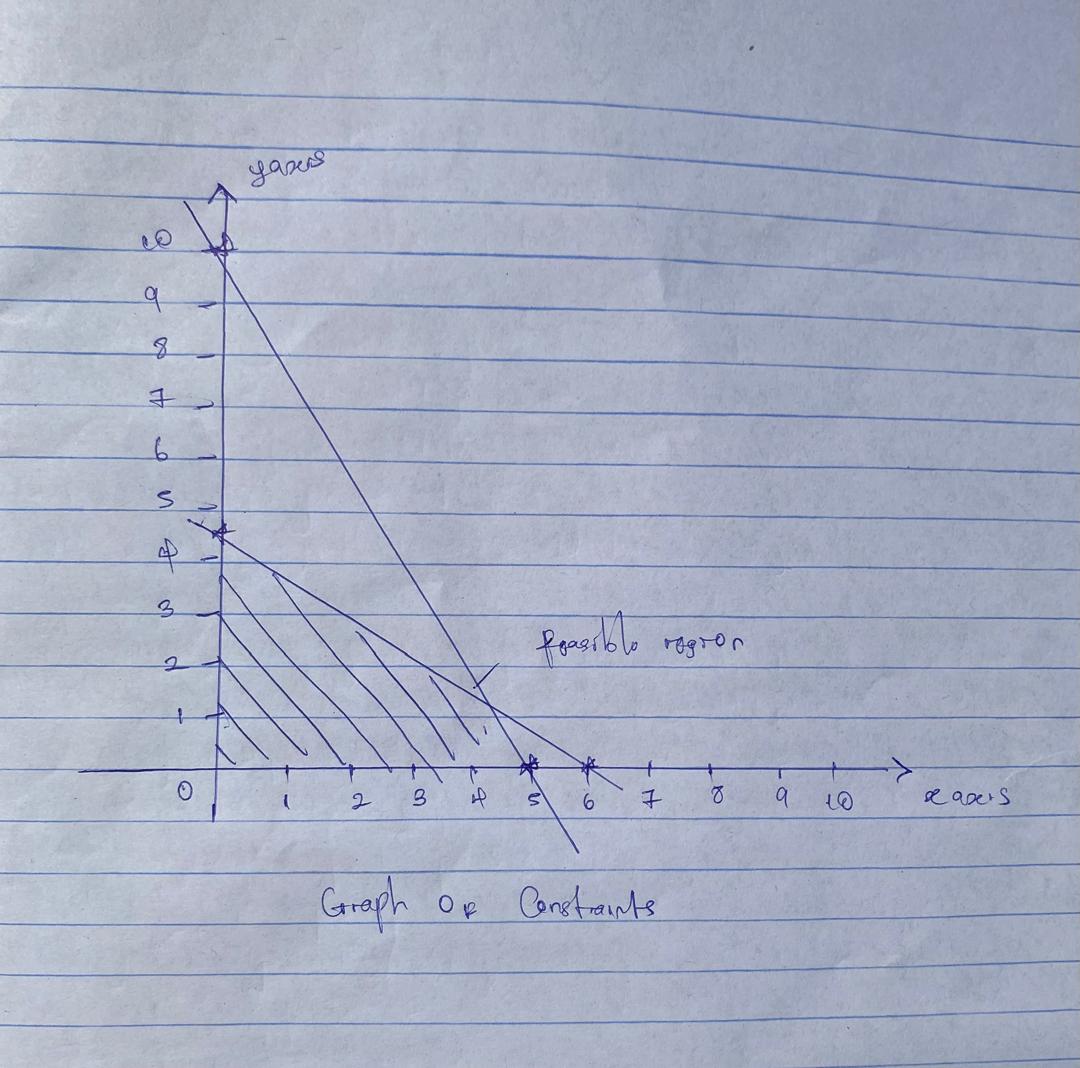 y axis
10
9
8
7
6
5
4
3
2
1
feasible region
0 1 2 3 4 5 6 7 8 9 10 x axis
Graph OF Constraints